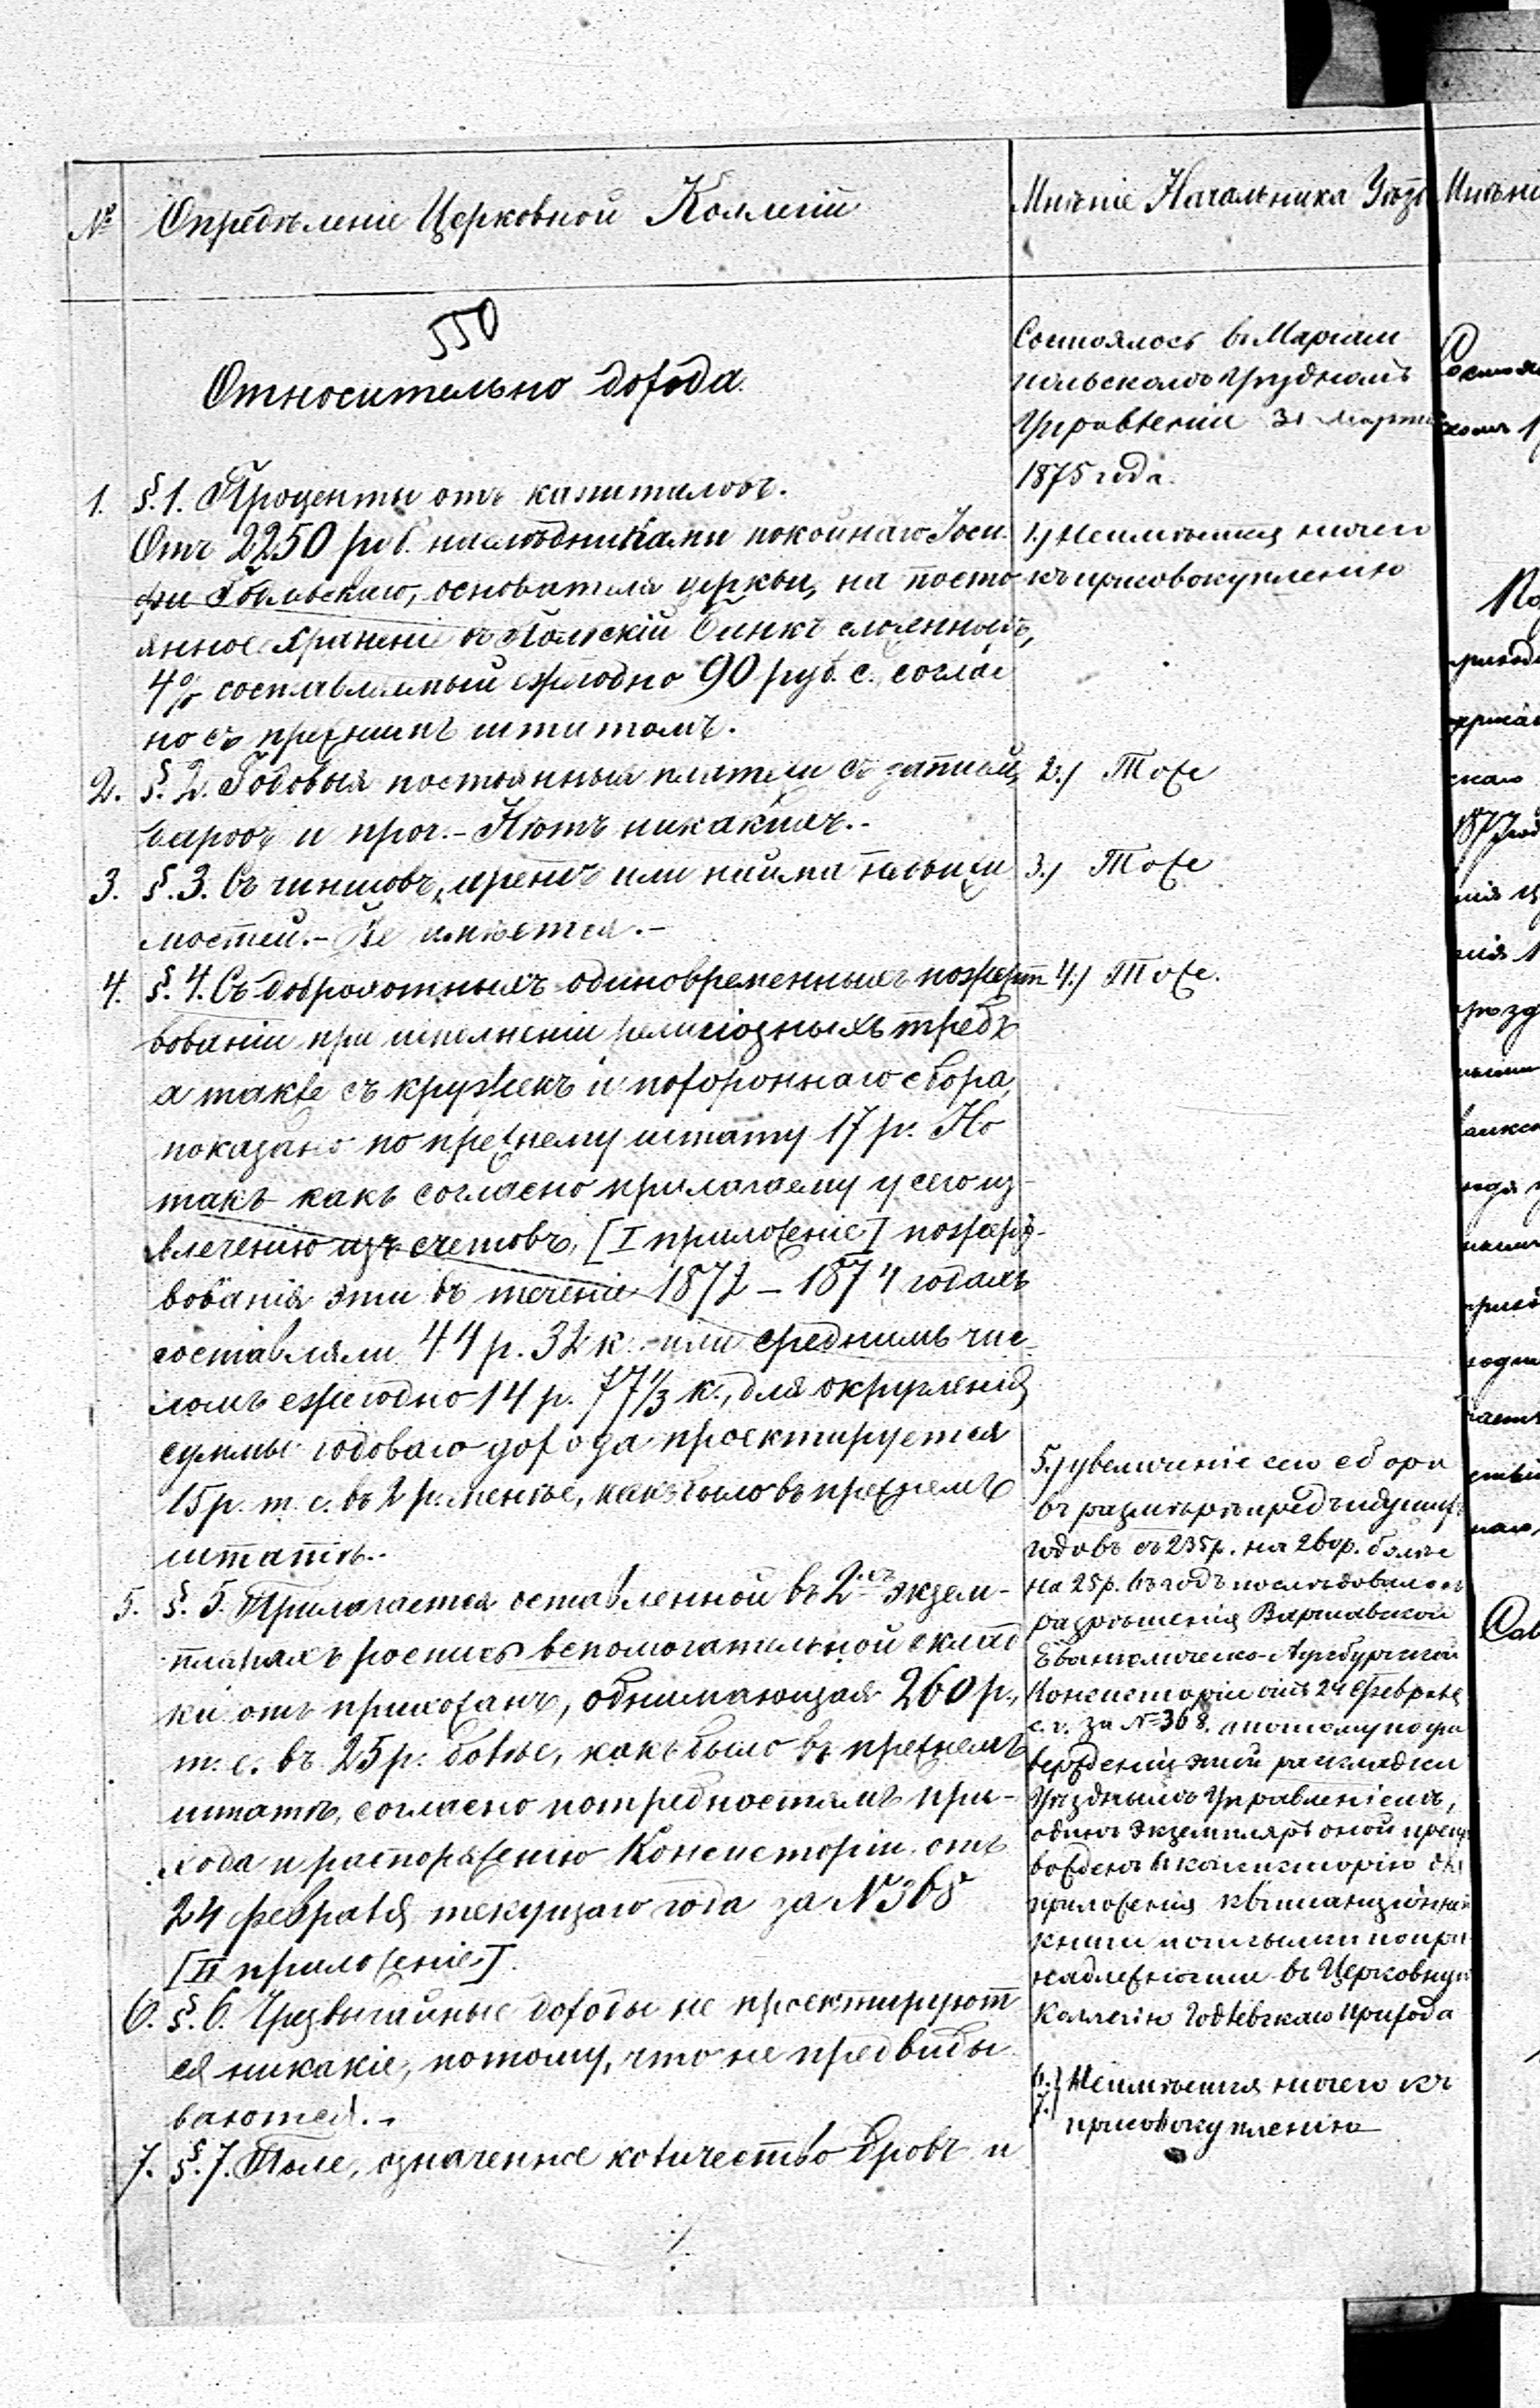 №
Опредѣленіе Церковной Коллегіи
Мнѣніе Начальника Уѣзд
550
Относительно дохода.
1. §.1. Проценты отъ капиталовъ.
Отъ 2250 руб. наслѣдниками покойнаго Іоси
фа Гобльскаго, основателя церкви, на посто
янное храненіе въ Польскій Банкъ сложенныхъ,
4% составляемый ежегодно 90 руб. с., соглас
но съ прежнимъ штатомъ.
2. §.2. Годовыя постоянныя платежи съ записей,
даровъ и проч. - Нѣтъ никакихъ. -
3. §.3. Съ чиншовъ, арендъ или найма
мостей. - Не имѣется. -
4. §.4. Съ доброхотныхъ одиновременныхъ пожерт
вованій при исполненіи религіозныхъ требъ
а также съ кружекъ и похороннаго сбора,
показано по прежнему штату 17 р. Но
такъ какъ согласно прилагаему у сего из-
влеченію изъ счетовъ, [I приложеніе] пожерт-
вованія эти въ теченіе 1872 - 1874 годахъ
составляли 44 р. 32 к. или среднимъ чис-
ломъ ежегодно 14 р. 77 1/3 к., для округленія
суммы годоваго дохода проектируется
15 р. т. е. въ 2 р. менѣе, какъ было въ прежнемъ
штатѣ. -
5. §.5. Прилагается оставленной въ 2-хъ экзем-
плярахъ роспись вспомогательной склад
ки отъ прихожанъ, обнимающая 260 р.,
т. е. въ 25 р. болѣе, какъ было въ прежнемъ
штатѣ, согласно потребностямъ при-
хода и распоряженію Консисторіи отъ
24 февраля текущаго года за № 368
[II приложеніе].
6. §.6. Чрезвычайные доходы не проектируют
ся никакіе, потому, что не предвиды
ваются. -
7. §.7. Поле, означенное количество дровъ и
Состоялось въ Маріам
польскомъ Уѣздномъ
Управленіи 31 Марта
1875 года.
1.) Неимѣется ничего
къ присовокупленію
2.) Тоже
3.) Тоже
4.) Тоже.
5.) увеличеніе сего сбора
въ размѣрѣ предъидущихъ
годовъ съ 235 р. на 260 р. болѣе
на 25 р. въ годъ послѣдовало съ
разрѣшенія Варшавской
Евангелическо-Аугсбургской
Консисторіи отъ 24 февраля
с. г. за № 368. а потому по ут
вержденіи этой раскладки
Уѣзднымъ Управленіемъ,
одинъ экземпляръ оной препро
вожденъ въ консисторію для
приложенія квитанціонной
книги
надлежности въ Церковную
Коллегію Годлевскаго прихода
6.) 7.) Неимѣется ничего къ
присовокупленію